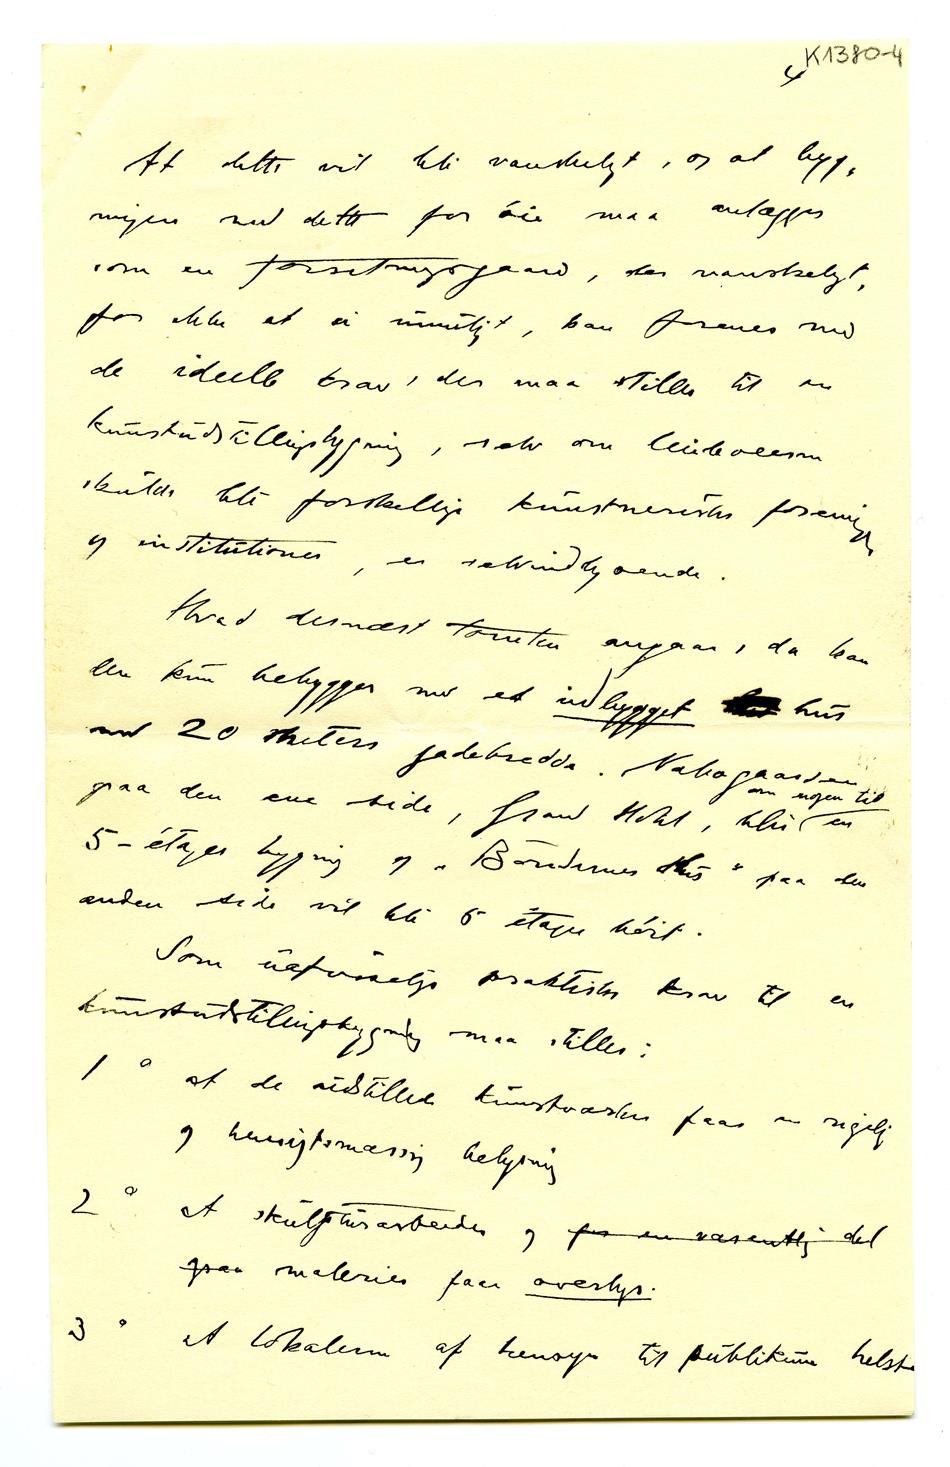 K1380-4
4
At dette vil bli vanskeligt, og at byg,
ningen med dette for öie maa anlægges
som en forretningsgaard, der vanskeligt,
for ikke at si umuligt, kan forenes med
de ideelle krav, der maa stilles til en
kunstudstillingsbygning, selv om leieboerne
skulde bli forskellige kunstneriske foreninger
og institutioner, er selvindlysende.
Hvad dernæst tomten angaar, da kan
den kun bebygges med et indbygget hus
med 20 meters gadebredde. Nabogaarden
paa den ene side, Grand Hotel, blir om nogen tid en
5-étages bygning og "Böndernes Hus" paa den
anden side vil bli 5 étager höit.
Som uafviselige praktiske krav til en
kunstudstillingsbygning maa stilles:
1° at de udstillede kunstværker faar en rigelig
og hensigtsmæssig belysning
2° at skulpturarbeider og for en væsentlig del
ogsaa malerier faar overlys.
3° at lokalerne af hensyn til publikum helst